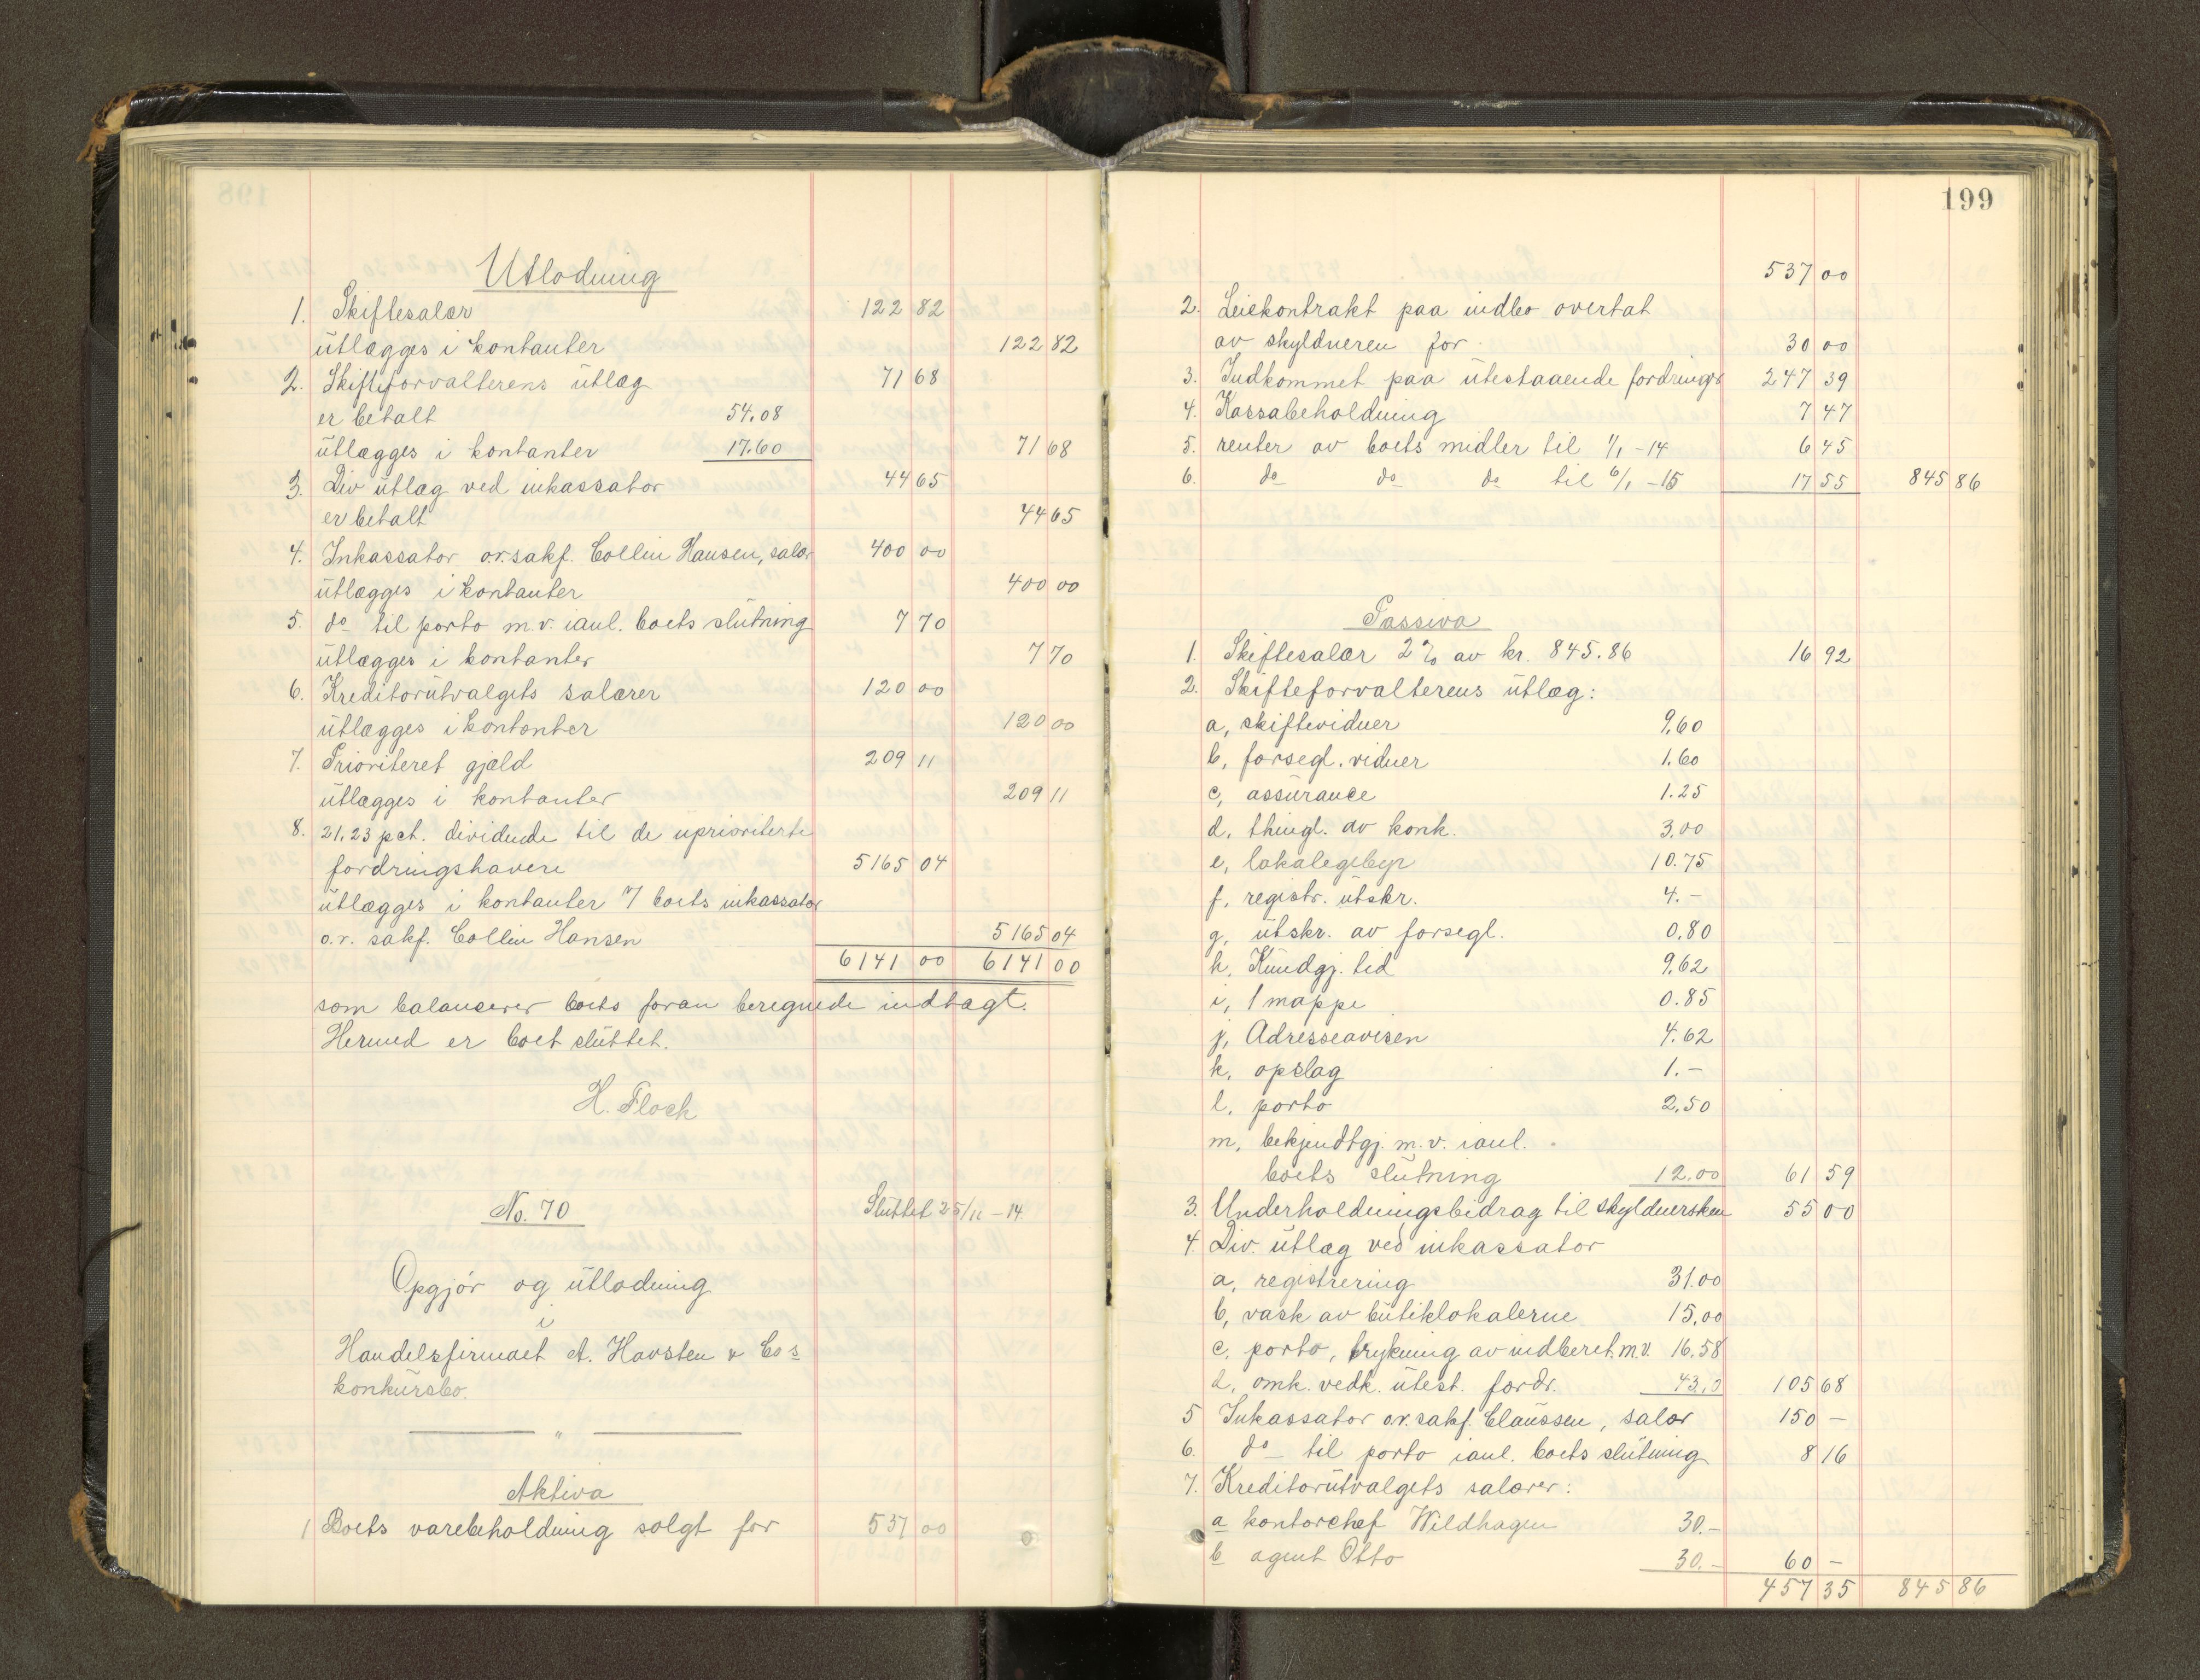 Utlodning
1. Skiftesalær 122 82
utlægges i kontanter 122 82
2. Skifteforvalterens utlæg 71 68
er betalt 54.08
utlægges i kontanter 17.60 71 68
3. Div utlæg ved inkassator 44 65
er betalt 44 65
4. Inkassator o.r.sakf. Collin Hansen, salær 400 00
utlægges i kontanter 400 00
5. do til porto m.v. ianl. boets slutning 7 70
utlægges i kontanter 7 70
6. Kreditorutvalgets salærer 120 00
utlægges i kontanter 120 00
7. Prioritert gjæld 209 11
utlægges i kontanter 209 11
8. 21,23 pct. dividende til de uprioriterte
fordringshavere 5165 04
utlægges i kontanter boets inkassator
o.r. sakf. Collin Hansen 5165 04
6141 00 6141 00
som balanserer boets foran beregnede indtægt.
Hermed er boet sluttet.
H. Floch
No. 70 Sluttet 25/11 - 14
Opgjør og utlodning
i
Handelsfirmaet A. Havsten & Co s
konkursbo.
"
Aktiva
1 Boets varebeholdning solgt for 537 00
199
537 00
2. Leiekontrakt paa indbo overtat
av skyldneren for 30 00
3. Indkommet paa utestaaende fordringer 247 39
4. Kassabeholdning 7 47
5. renter av boets midler til 1/1 - 14 6 45
6. do do do til 6/1 - 15 17 55 845 86
Passiva
1. Skiftesalær 2% av kr. 845.86 16 92
2. Skifteforvalterens utlæg:
a, skiftevidner 9,60
b, forsegl. vidner 1.60
c, assurance 1.25
d, thingl. av konk. 3,00
e, lokalegebyr 10.75
f, registr. utskr. 4.-
g, utskr. av forsegl. 0,80
h, Kundgj. tid 9,62
i, 1 mappe 0.85
j, Adresseavisen 4.62
k, opslag 1.-
l, porto 2,50
m, bekjendtgj. m.v. ianl.
boets slutning 12.00 61 59
3. Underholdningsbidrag til skyldnersken 55 00
4. Div. utlæg ved inkassator
a, registrering 31.00
b, vask av butiklokalerne 15,00
c, porto, trykning av indberet. m.v. 16.58
d, omk. vedk. utest. fordr. 43,10 105 68
5 Inkassator o.r. sakf. Claussen, salær 150 -
6. do til porto ianl. boets slutning 8 16
7. Kreditorutvalgets salærer:
a kontorchef Wildhagen 30.-
b agent Otto 30.- 60 -
457 35 845 86